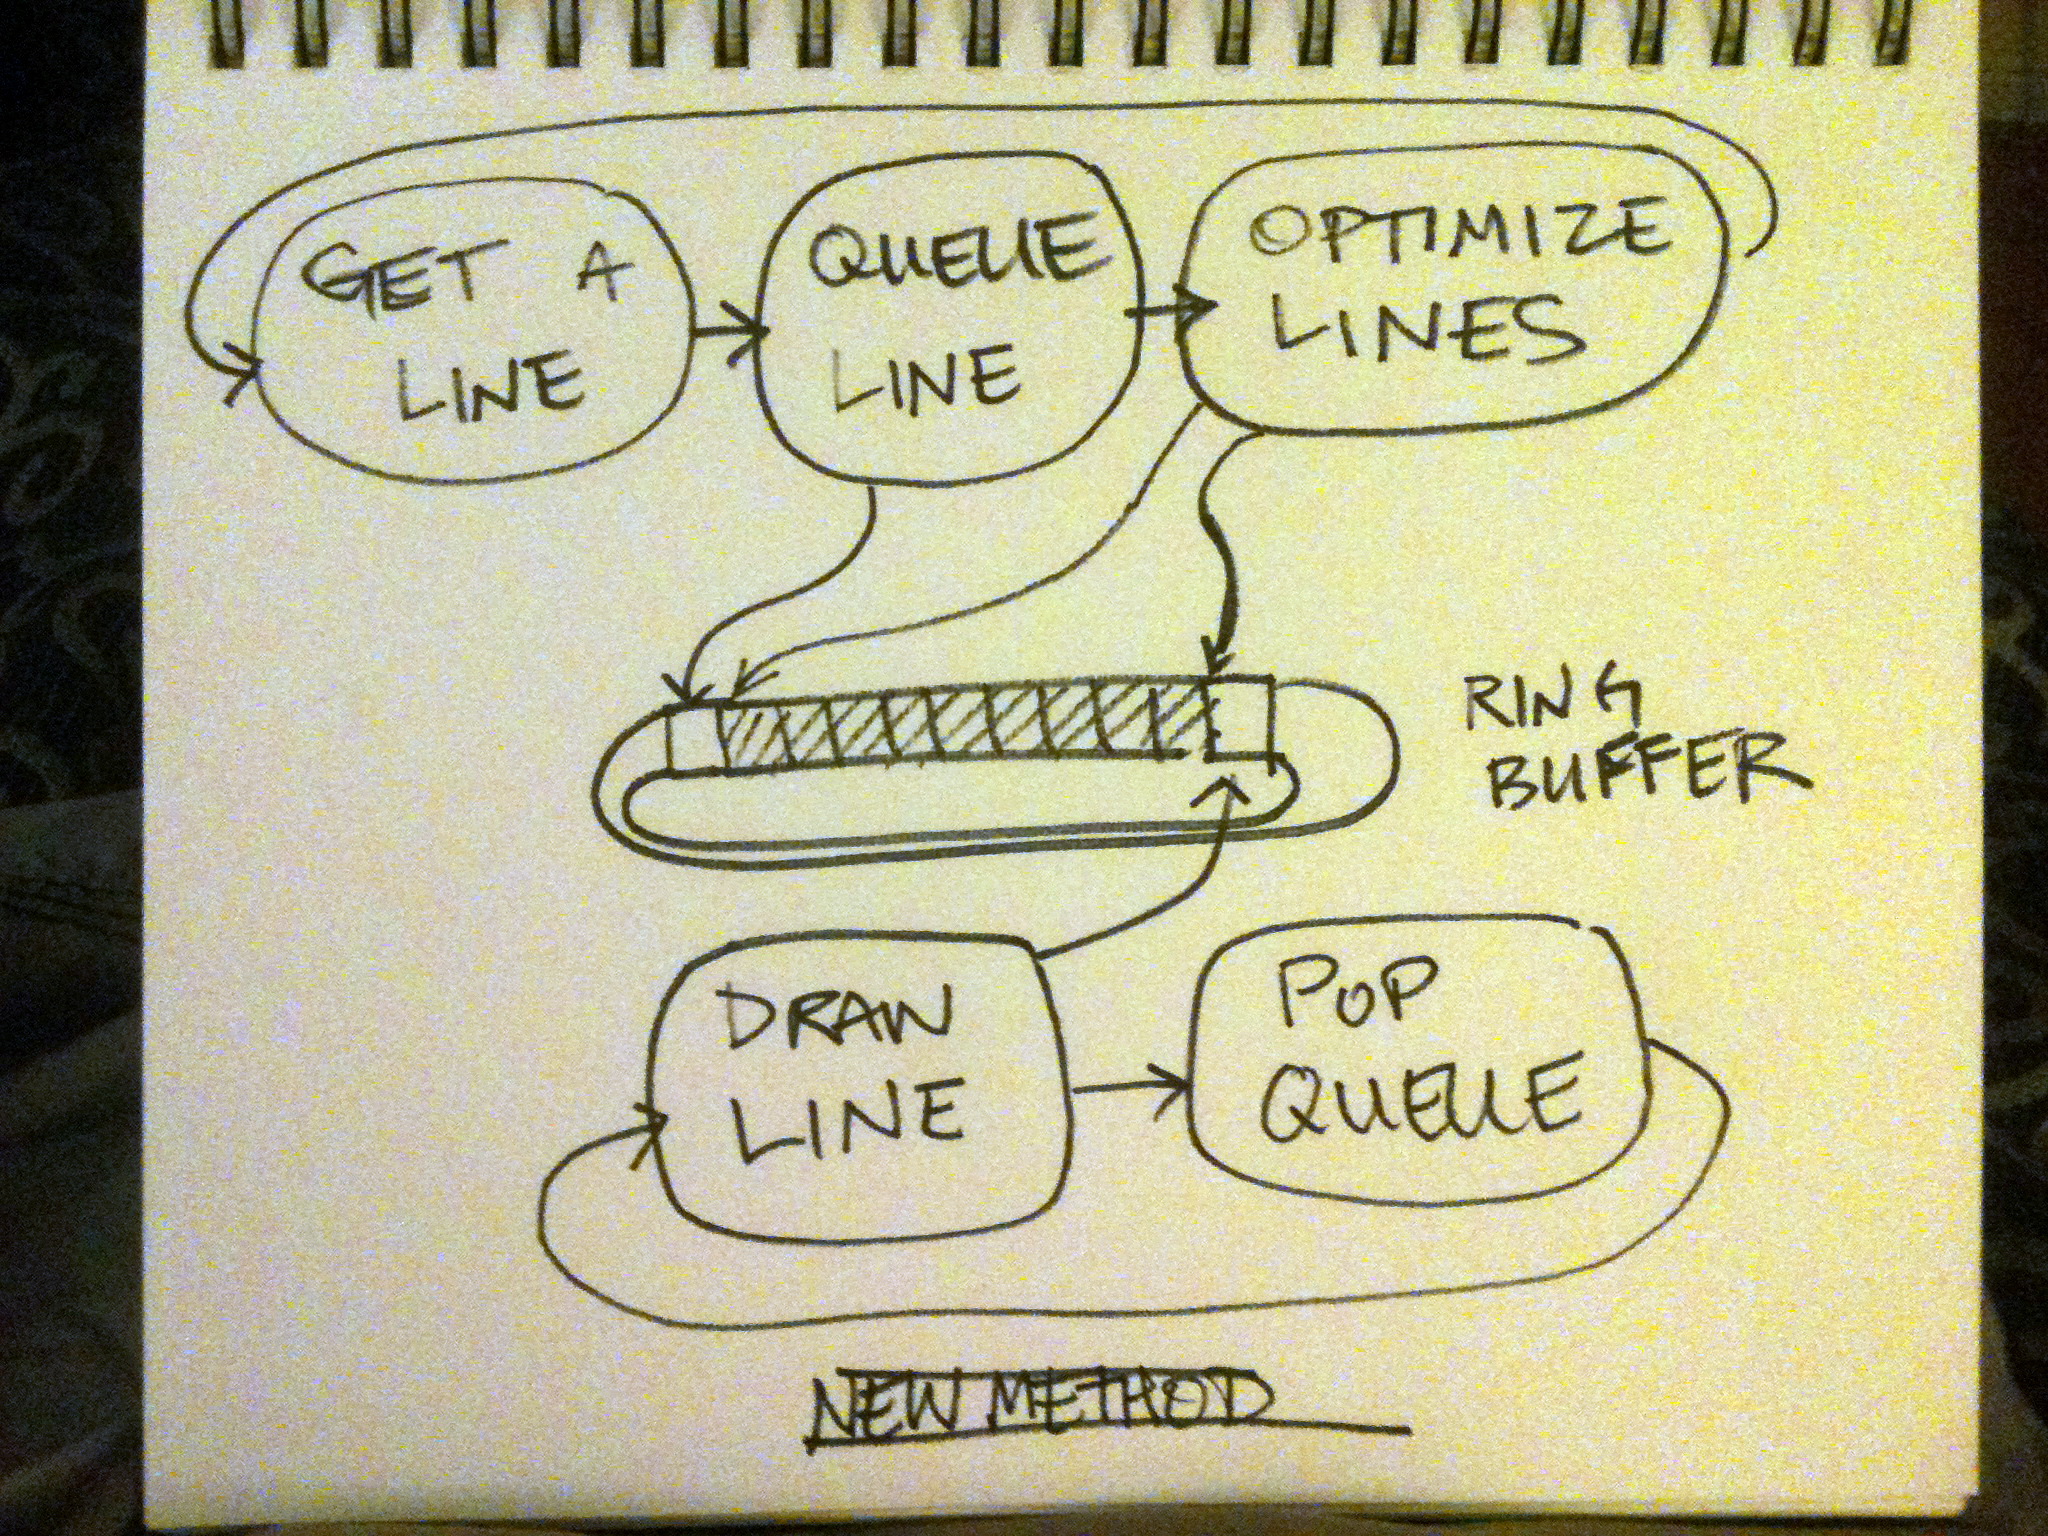 GET A
LINE
QUEUE
LINE
OPTIMIZE
LINES
RING
BUFFER
DRAW
LINE
POP
QUEUE
NEW METHOD